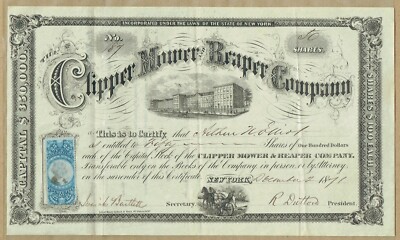 INCORPORATED UNDER THE LAWS OF THE STATE OF NEW YORK.
No. 57
50 SHARES.
THE
Clipper Mower and Reaper Company
CAPITAL $350,000.
SHARES $100 EACH.
This is to Certify that
is entitled to Fifty Shares of One Hundred Dollars
each of the Capital Stock of the CLIPPER MOWER & REAPER COMPANY,
Transferable only on the Books of the Company in person or by Attorney,
on the surrender of this Certificate.
NEW YORK, December 2 1871
Secretary
R. Dutton President